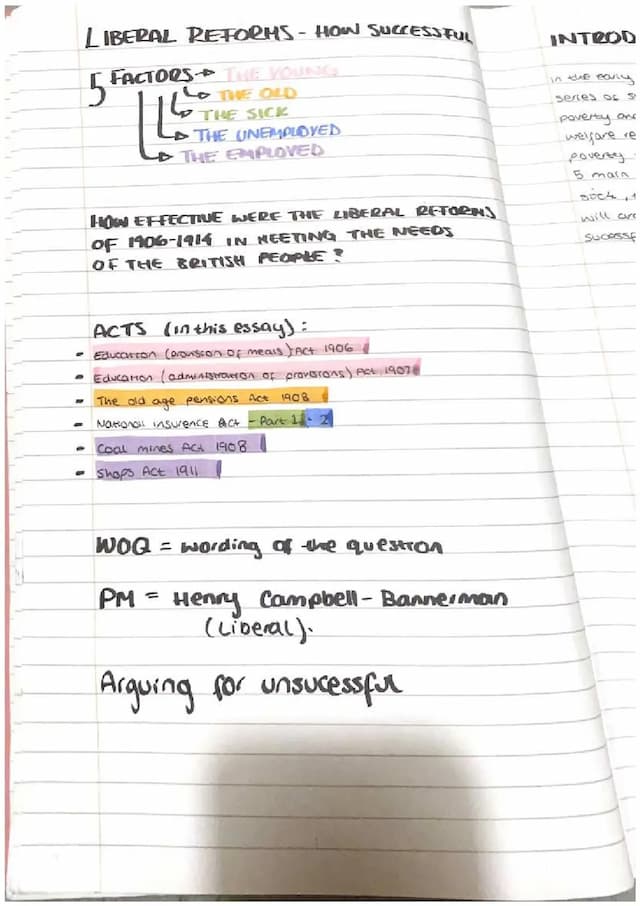 LIBERAL REFORMS - HOW SUCCESSFUL
5 FACTORS → THE YOUNG
THE OLD
THE SICK
THE UNEMPLOYED
THE EMPLOYED
HOW EFFECTIVE WERE THE LIBERAL REFORMS
OF 1906-1914 IN MEETING THE NEEDS
OF THE BRITISH PEOPLE?
ACTS (in this essay):
- Education (provision of meals) Act 1906
- Education (administration of provisions) Act 1907
- The old age pensions Act 1908
- National insurence Act - Part 1 - 2
- Coal mines Act 1908
- Shops Act 1911
WOQ = wording of the question
PM = Henry Campbell-Bannerman
(Liberal).
Arguing for unsucessful
INTROD
in the early
series of s
poverty an
welfare re
poverty
5 main
sick, 
will
successf